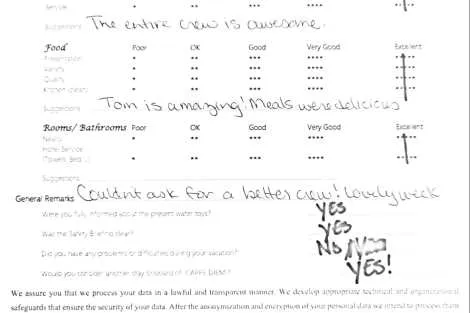 Service
Suggestions The entire crew is awesome.
Food Poor OK Good Very Good Excellent
Presentation
Variety
Quality
Kitchen
Suggestions Tom is amazing! Meals were delicious
Rooms/Bathrooms Poor OK Good Very Good Excellent
Hotel Service
(Towels, Bed ...)
Suggestions
General Remarks Couldnt ask for a better crew! Lovely week
Were you fully informed about the present water toys? YES
Was the Safety Briefing clear? YES
Did you have any problems or difficulties during your vacation? NO
Would you consider another stay onboard of YES!
We assure you that we process your data in a lawful and transparent manner. We develop appropriate technical and organizational
safeguards that ensure the security of your data. After the anonymization and encryption of your personal data we intend to process them